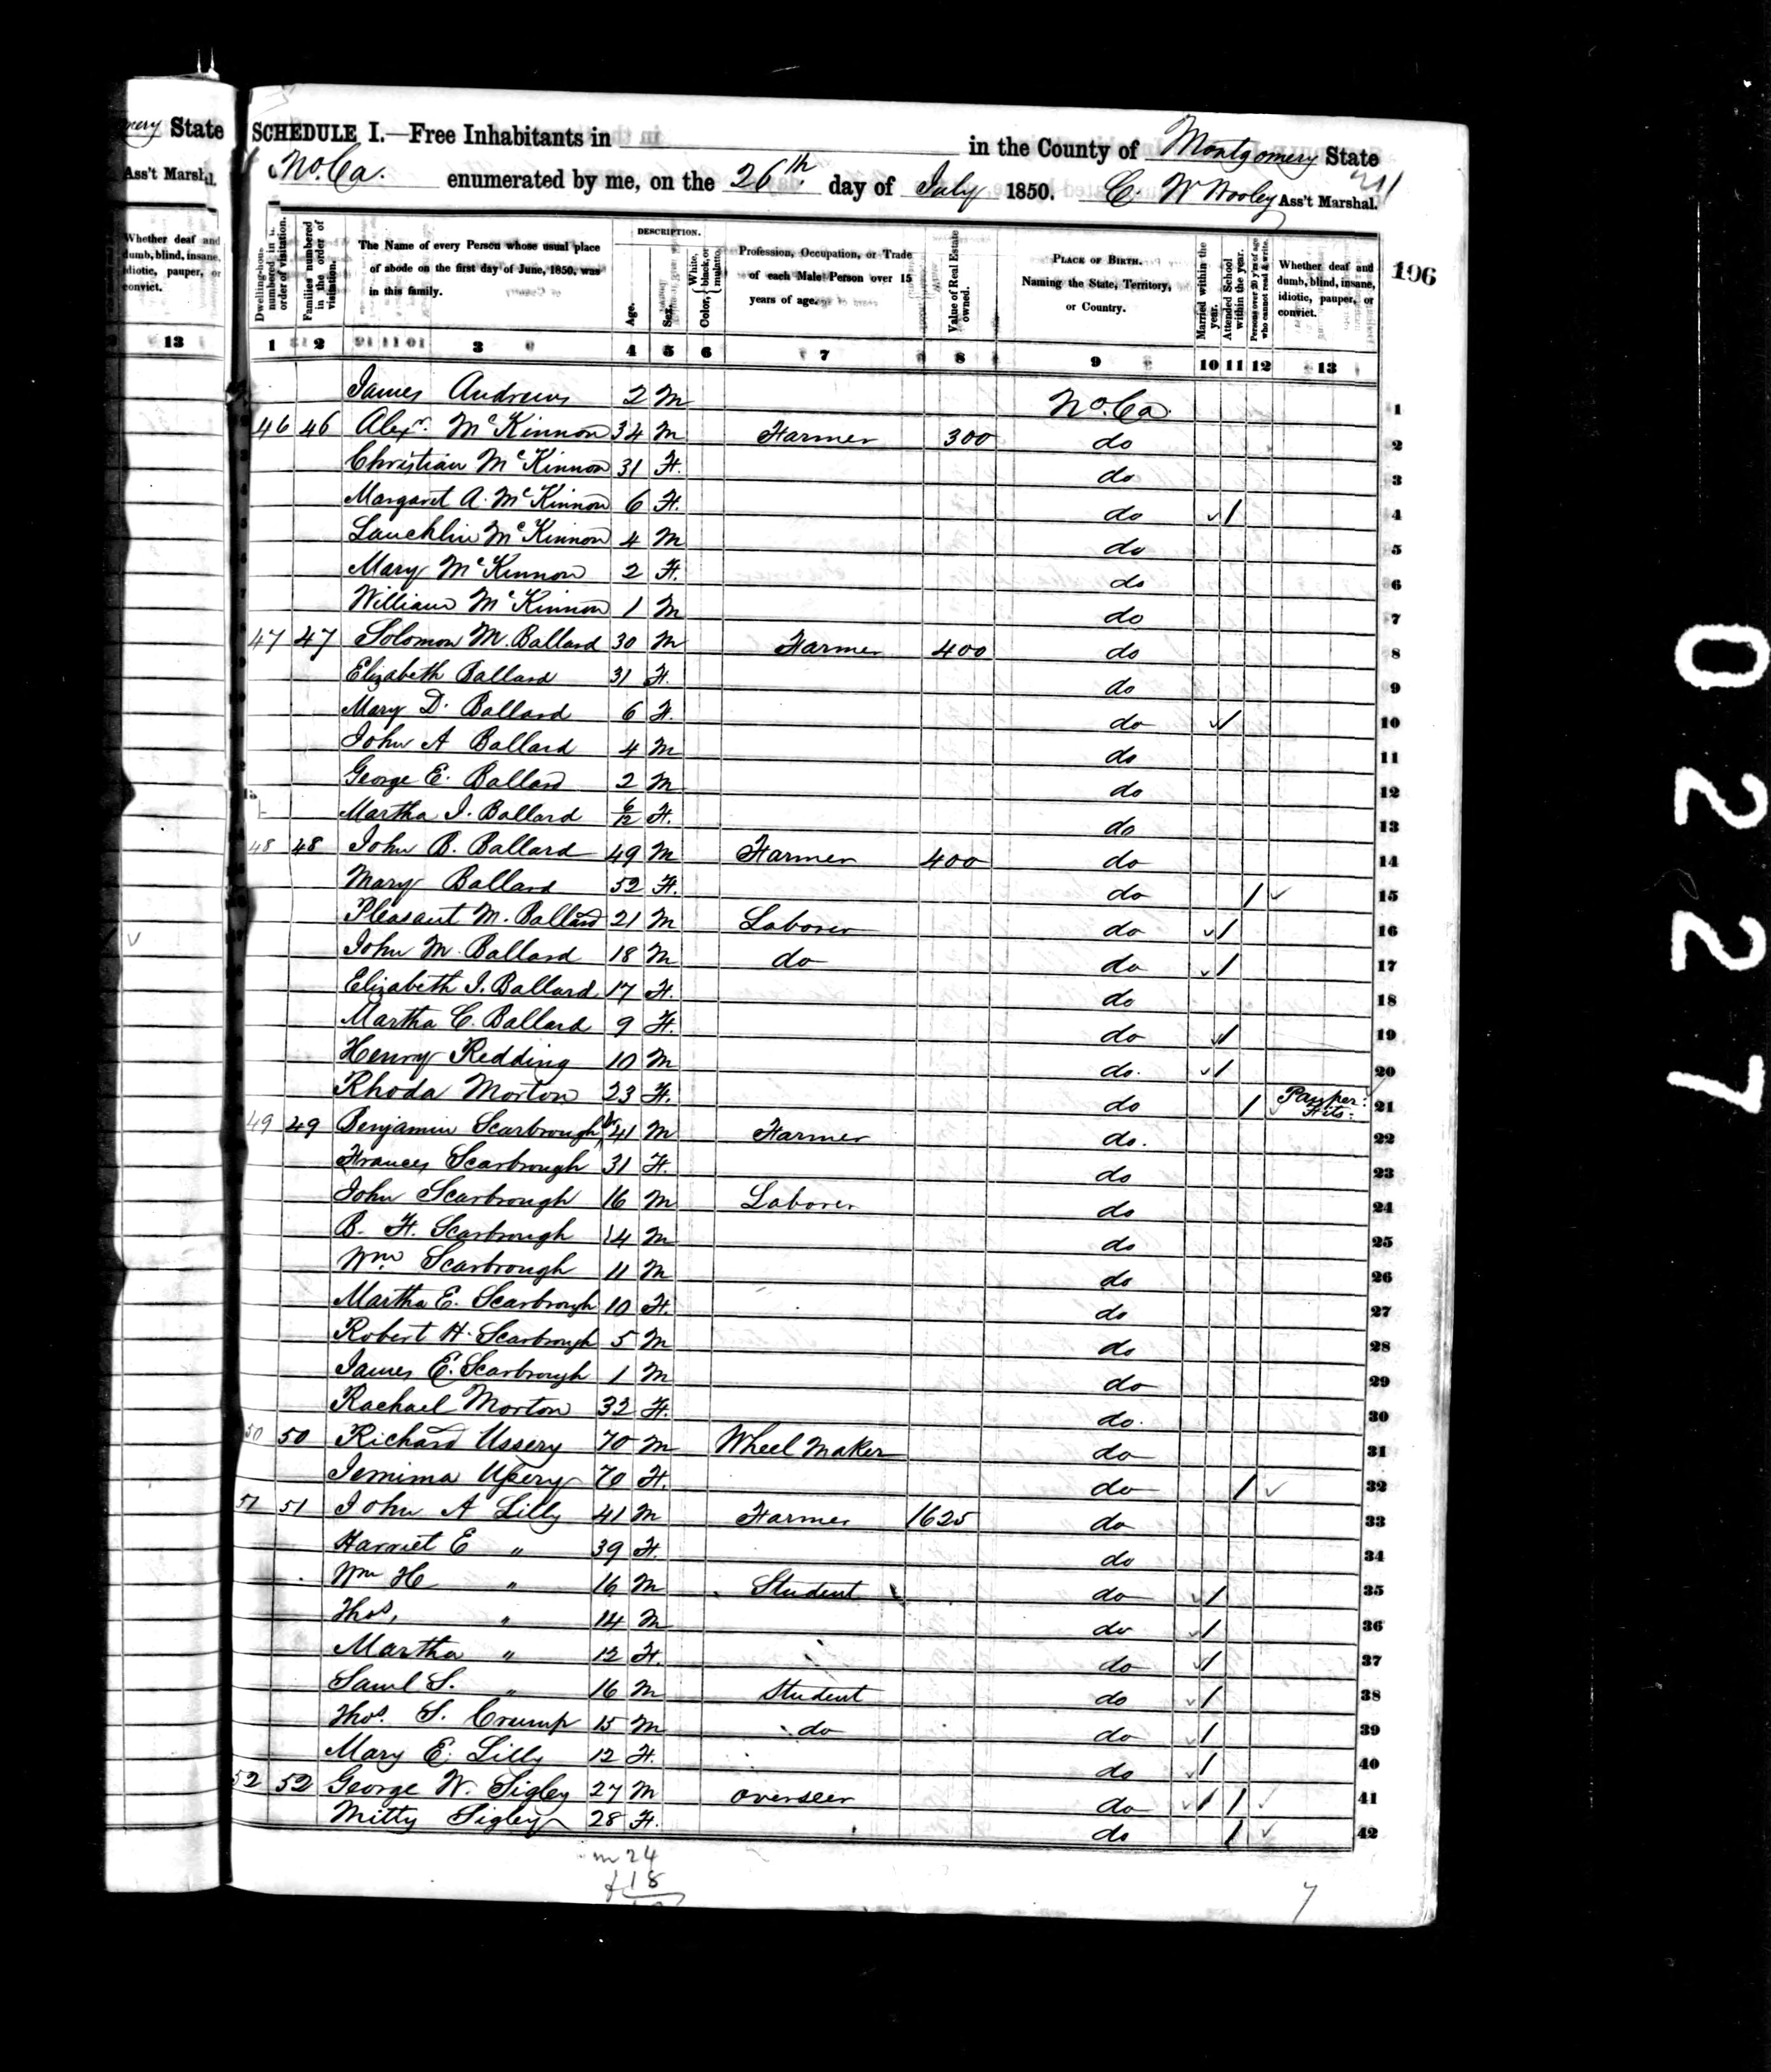 mery State
Ass't Marshal.
Whether deaf and dumb, blind, insane, idiotic, pauper, or convict.
13
SCHEDULE I.—Free Inhabitants in in the County of Montgomery State
No. Ca. enumerated by me, on the 26th day of July 1850. C. W Wooley Ass't Marshal.
196
DESCRIPTION.
Dwelling-houses numbered in the order of visitation.
Families numbered in the order of visitation.
The Name of every Person whose usual place of abode on the first day of June, 1850, was in this family.
Age.
Sex.
Color, White, black, or mulatto.
Profession, Occupation, or Trade of each Male Person over 15 years of age.
Value of Real Estate owned.
PLACE OF BIRTH. Naming the State, Territory, or Country.
Married within the year.
Attended School within the year.
Persons over 20 y'rs of age who cannot read & write.
Whether deaf and dumb, blind, insane, idiotic, pauper, or convict.
1 2 3 4 5 6 7 8 9 10 11 12 13
James Andrews 2 M No. Ca. 1
46 46 Alexr. McKinnon 34 M Farmer 300 do 2
Christian McKinnon 31 F. do 3
Margaret A. McKinnon 6 F. do / 4
Lauchlin McKinnon 4 M do 5
Mary McKinnon 2 F. do 6
William McKinnon 1 M do 7
47 47 Solomon M. Ballard 30 M Farmer 400 do 8
Elizabeth Ballard 31 F. do 9
Mary D. Ballard 6 F. do / 10
John A Ballard 4 M do 11
George E. Ballard 2 M do 12
Martha J. Ballard 6/12 F. do 13
48 48 John B. Ballard 49 M Farmer 400 do 14
Mary Ballard 52 F. do / 15
Pleasant M. Ballard 21 M Laborer do / 16
John M. Ballard 18 M do do / 17
Elizabeth J. Ballard 17 F. do 18
Martha C. Ballard 9 F. do / 19
Henry Redding 10 M do. / 20
Rhoda Morton 23 F. do / Pauper: Fits: 21
49 49 Benjamin Scarbrough 41 M Farmer do. 22
Frances Scarbrough 31 F. do 23
John Scarbrough 16 M Laborer do 24
B. F. Scarbrough 14 M do 25
Wm. Scarbrough 11 M do 26
Martha E. Scarbrough 10 F. do 27
Robert H. Scarbrough 5 M do 28
James E. Scarbrough 1 M do 29
Rachael Morton 32 F. do. 30
50 50 Richard Ussery 70 M Wheel Maker do 31
Jemima Ussery 70 F. do / 32
51 51 John A Lilly 41 M Farmer 1625 do 33
Harriet E " 39 F. do 34
Wm H " 16 M Student do / 35
Thos. " 14 M do / 36
Martha " 12 F. do / 37
Saml S. " 16 M Student do / 38
Thos. S. Crump 15 M do do / 39
Mary E. Lilly 12 F. do / 40
52 52 George W. Sigley 27 M overseer do / / 41
Mitty Sigley 28 F. do / 42
m 24
f 18
7
0227